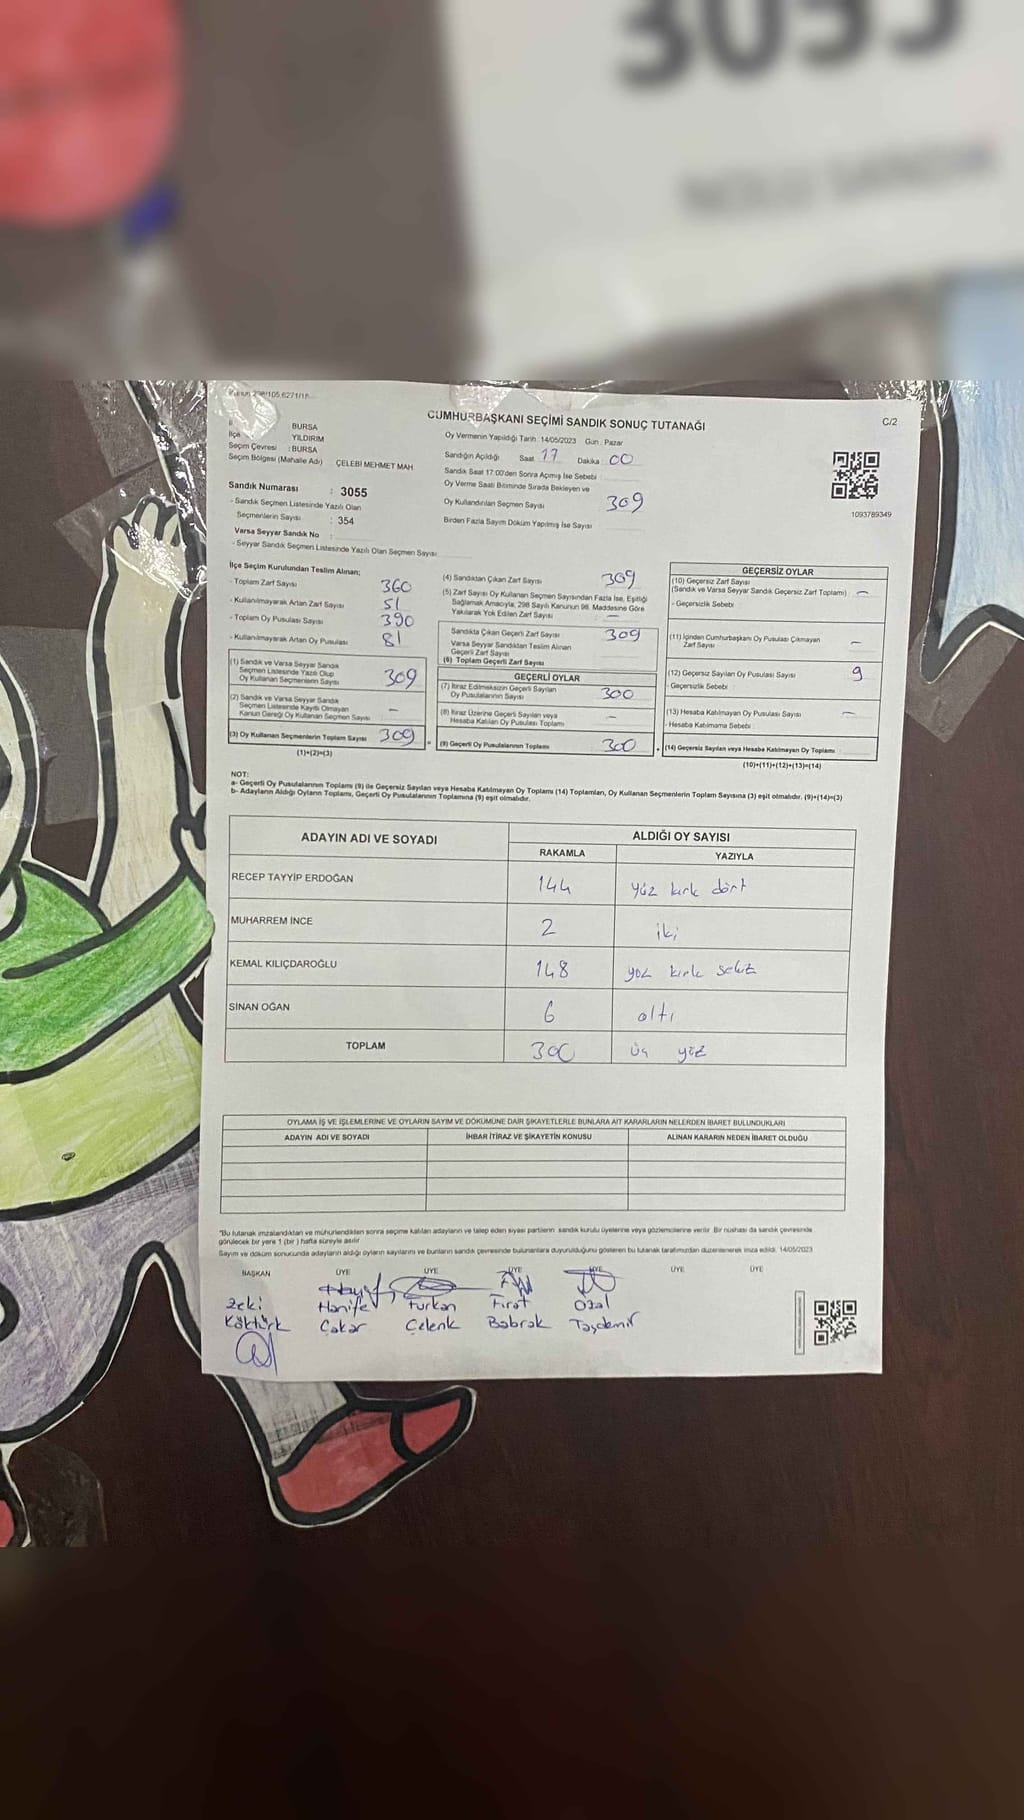 3055
NOLU SANDIK
CUMHURBAŞKANI SEÇİMİ SANDIK SONUÇ TUTANAĞI
C/2
İl BURSA
İlçe YILDIRIM
Seçim Çevresi : BURSA
Seçim Bölgesi (Mahalle Adı) ÇELEBİ MEHMET MAH.
Sandık Numarası : 3055
- Sandık Seçmen Listesinde Yazılı Olan
Seçmenlerin Sayısı : 354
Varsa Seyyar Sandık No :
- Seyyar Sandık Seçmen Listesinde Yazılı Olan Seçmen Sayısı
Oy Vermenin Yapıldığı Tarih : 14/05/2023 Gün : Pazar
Sandığın Açıldığı Saat 17 Dakika 00
Sandık Saat 17:00'den Sonra Açılmış İse Sebebi
Oy Verme Saati Bitiminde Sırada Bekleyen ve
Oy Kullandırılan Seçmen Sayısı 309
Birden Fazla Sayım Döküm Yapılmış İse Sayısı
1093789349
İlçe Seçim Kurulundan Teslim Alınan;
- Toplam Zarf Sayısı 360
- Kullanılmayarak Artan Zarf Sayısı 51
- Toplam Oy Pusulası Sayısı 390
- Kullanılmayarak Artan Oy Pusulası 81
(1) Sandık ve Varsa Seyyar Sandık
Seçmen Listesinde Yazılı Olup
Oy Kullanan Seçmenlerin Sayısı 309
(2) Sandık ve Varsa Seyyar Sandık
Seçmen Listesinde Kayıtlı Olmayan
Kanun Gereği Oy Kullanan Seçmen Sayısı -
(3) Oy Kullanan Seçmenlerin Toplam Sayısı 309
(1)+(2)=(3)
(4) Sandıktan Çıkan Zarf Sayısı 309
(5) Zarf Sayısı Oy Kullanan Seçmen Sayısından Fazla İse, Eşitliği
Sağlamak Amacıyla, 298 Sayılı Kanunun 98. Maddesine Göre
Yakılarak Yok Edilen Zarf Sayısı -
Sandıkta Çıkan Geçerli Zarf Sayısı 309
Varsa Seyyar Sandıktan Teslim Alınan
Geçerli Zarf Sayısı
(6) Toplam Geçerli Zarf Sayısı
GEÇERLİ OYLAR
(7) İtiraz Edilmeksizin Geçerli Sayılan
Oy Pusulalarının Sayısı 300
(8) İtiraz Üzerine Geçerli Sayılan veya
Hesaba Katılan Oy Pusulası Toplamı -
(9) Geçerli Oy Pusulalarının Toplamı 300
GEÇERSİZ OYLAR
(10) Geçersiz Zarf Sayısı
(Sandık ve Varsa Seyyar Sandık Geçersiz Zarf Toplamı) -
- Geçersizlik Sebebi
(11) İçinden Cumhurbaşkanı Oy Pusulası Çıkmayan
Zarf Sayısı -
(12) Geçersiz Sayılan Oy Pusulası Sayısı 9
- Geçersizlik Sebebi
(13) Hesaba Katılmayan Oy Pusulası Sayısı -
- Hesaba Katılmama Sebebi
(14) Geçersiz Sayılan veya Hesaba Katılmayan Oy Toplamı
(10)+(11)+(12)+(13)=(14)
NOT:
a- Geçerli Oy Pusulalarının Toplamı (9) ile Geçersiz Sayılan veya Hesaba Katılmayan Oy Toplamı (14) Toplamları, Oy Kullanan Seçmenlerin Toplam Sayısına (3) eşit olmalıdır. (9)+(14)=(3)
b- Adayların Aldığı Oyların Toplamı, Geçerli Oy Pusulalarının Toplamına (9) eşit olmalıdır.
ADAYIN ADI VE SOYADI ALDIĞI OY SAYISI
RAKAMLA YAZIYLA
RECEP TAYYİP ERDOĞAN 144 yüz kırk dört
MUHARREM İNCE 2 iki
KEMAL KILIÇDAROĞLU 148 yüz kırk sekiz
SİNAN OĞAN 6 altı
TOPLAM 300 üç yüz
OYLAMA İŞ VE İŞLEMLERİNE VE OYLARIN SAYIM VE DÖKÜMÜNE DAİR ŞİKAYETLERLE BUNLARA AİT KARARLARIN NELERDEN İBARET BULUNDUKLARI
ADAYIN ADI VE SOYADI İHBAR İTİRAZ VE ŞİKAYETİN KONUSU ALINAN KARARIN NEDEN İBARET OLDUĞU
*Bu tutanak imzalandıktan ve mühürlendikten sonra seçime katılan adayların ve talep eden siyasi partilerin sandık kurulu üyelerine veya gözlemcilerine verilir. Bir nüshası da sandık çevresinde
görülecek bir yere 1 (bir) hafta süreyle asılır.
Sayım ve döküm sonucunda adayların aldığı oyların sayılarını ve bunların sandık çevresinde bulunanlara duyurulduğunu gösteren bu tutanak tarafımızdan düzenlenerek imza edildi. 14/05/2023
BAŞKAN ÜYE ÜYE ÜYE ÜYE ÜYE ÜYE
Zeki Hanife Furkan Fırat Özal
Köktürk Çakar Çelenk Babrak Taşdemir